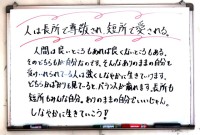 人は長所で尊敬され、短所で愛される。
人間は良いところもあれば良くないところもある。
そのどちらもが自分なのです。そんなありのままの自分を
受け入れられている人は凄くしなやかに生きています。
どちらかばかり見てると、バランスが崩れます。長所も
短所もみんな自分。ありのままの自分でいいじゃん。
しなやかに生きていこう!